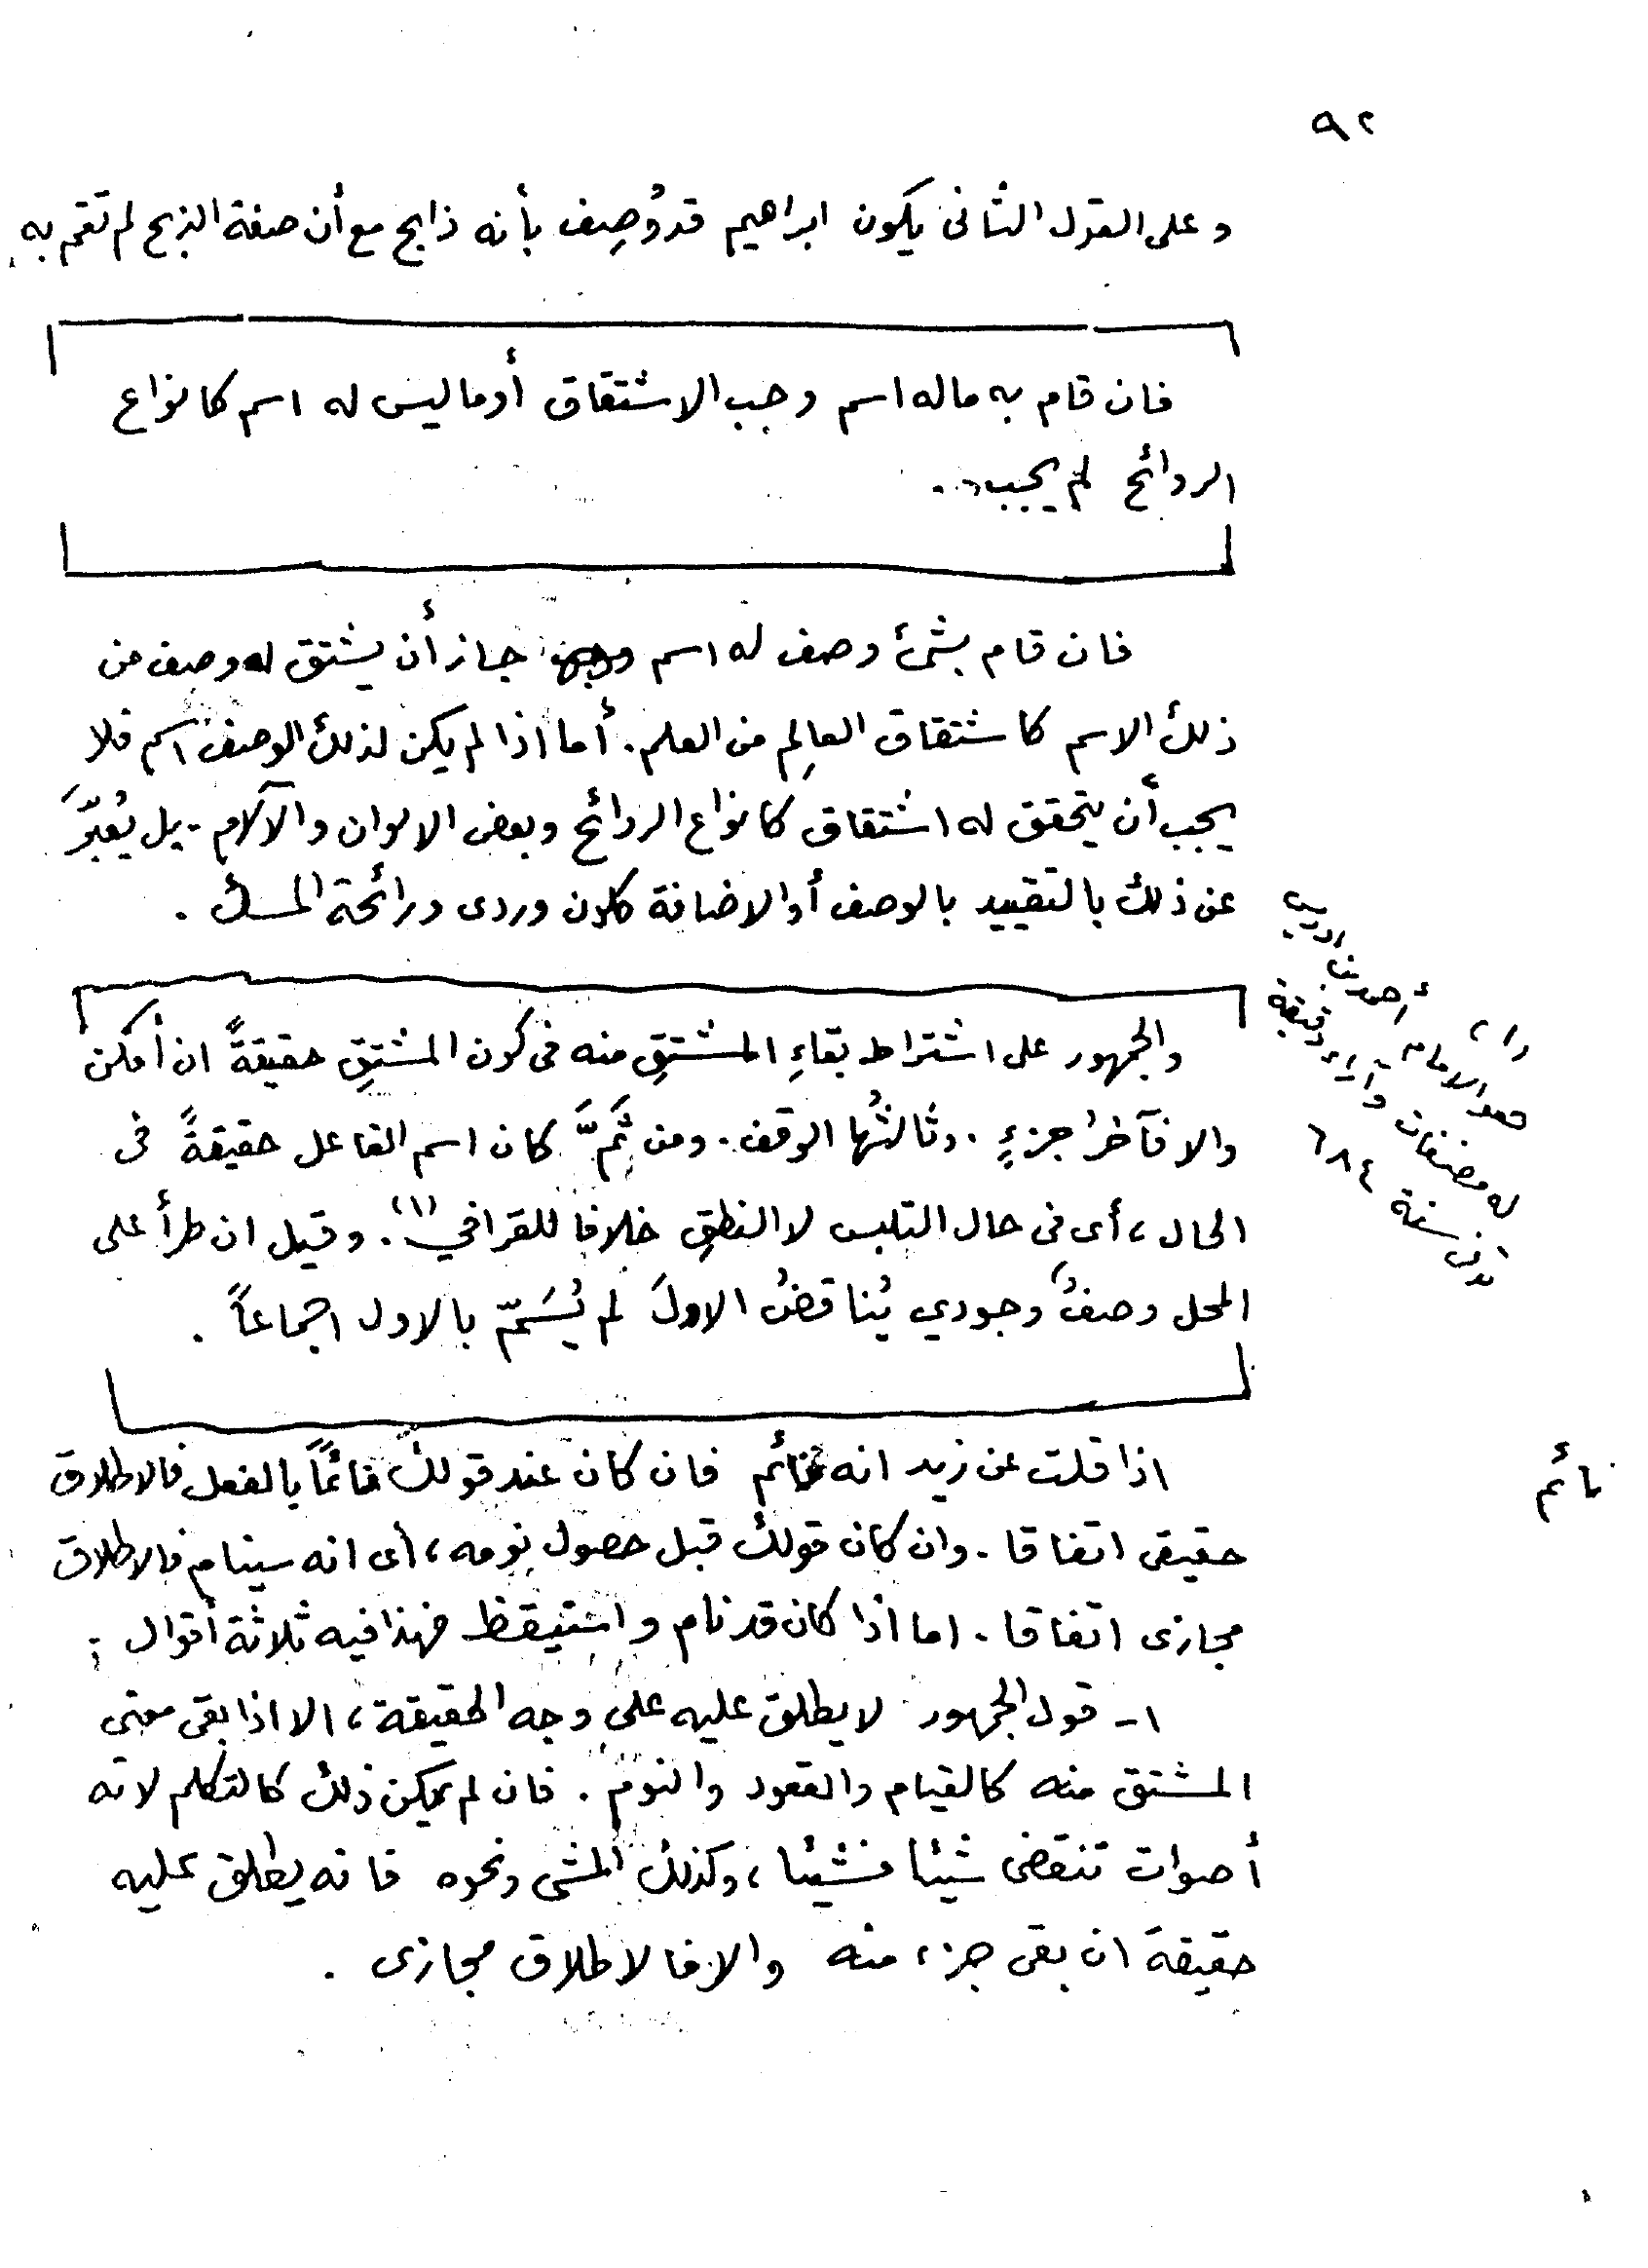 ٩٢
وعلى القول الثانى يكون ابراهيم قد وُصِف بأنه ذابح مع أن صفة الذبح لم تقم به
فان قام به ماله اسم وجب الاشتقاق أو ما ليس له اسم كانواع
الروائح لم يجب .
فان قام بشئ وصف له اسم جاز أن يشتق له وصف من
ذلك الاسم كاشتقاق العالِم من العلم . أما اذا لم يكن لذلك الوصف اسم فلا
يجب أن يتحقق له اشتقاق كانواع الروائح وبعض الالوان والآلام . بل يُعبَّر
عن ذلك بالتقييد بالوصف أو الاضافة كلون وردى ورائحة المسك .
والجمهور على اشتراط بقاءِ المشتقِ منه فى كون المشتقِ حقيقةً ان أمكن
والا فآخرُ جزءٍ . وثالثُها الوقف . ومن ثَمَّ كان اسم الفاعل حقيقةً فى
الحال ، أى فى حال التلبس لا النطقِ خلافا للقرافي (١) . وقيل ان طرأ على
المحل وصفٌ وجودي يُناقضُ الاولَ لم يُسَمَّ بالاول اجماعاً .
(١) أحمد بن ادريس
هو الامام
له مصنفات وآراء دقيقة
توفى سنة ٦٨٤
اذا قلت عن زيد انه نائم فان كان عند قولك نائماً بالفعل فالاطلاق
نائم
حقيقى اتفاقا . وان كان قولك قبل حصول نومه ، أى انه سينام فالاطلاق
مجازى اتفاقا . اما اذا كان قد نام واستيقظ فهذا فيه ثلاثة أقوال :
١- قول الجمهور لا يطلق عليه على وجه الحقيقة ، الا اذا بقى معنى
المشتق منه كالقيام والقعود والنوم . فان لم يمكن ذلك كالتكلم لانه
أصوات تنقضى شيئا فشيئا ، وكذلك المشى ونحوه فانه يطلق عليه
حقيقة ان بقى جزء منه والا فالاطلاق مجازى .